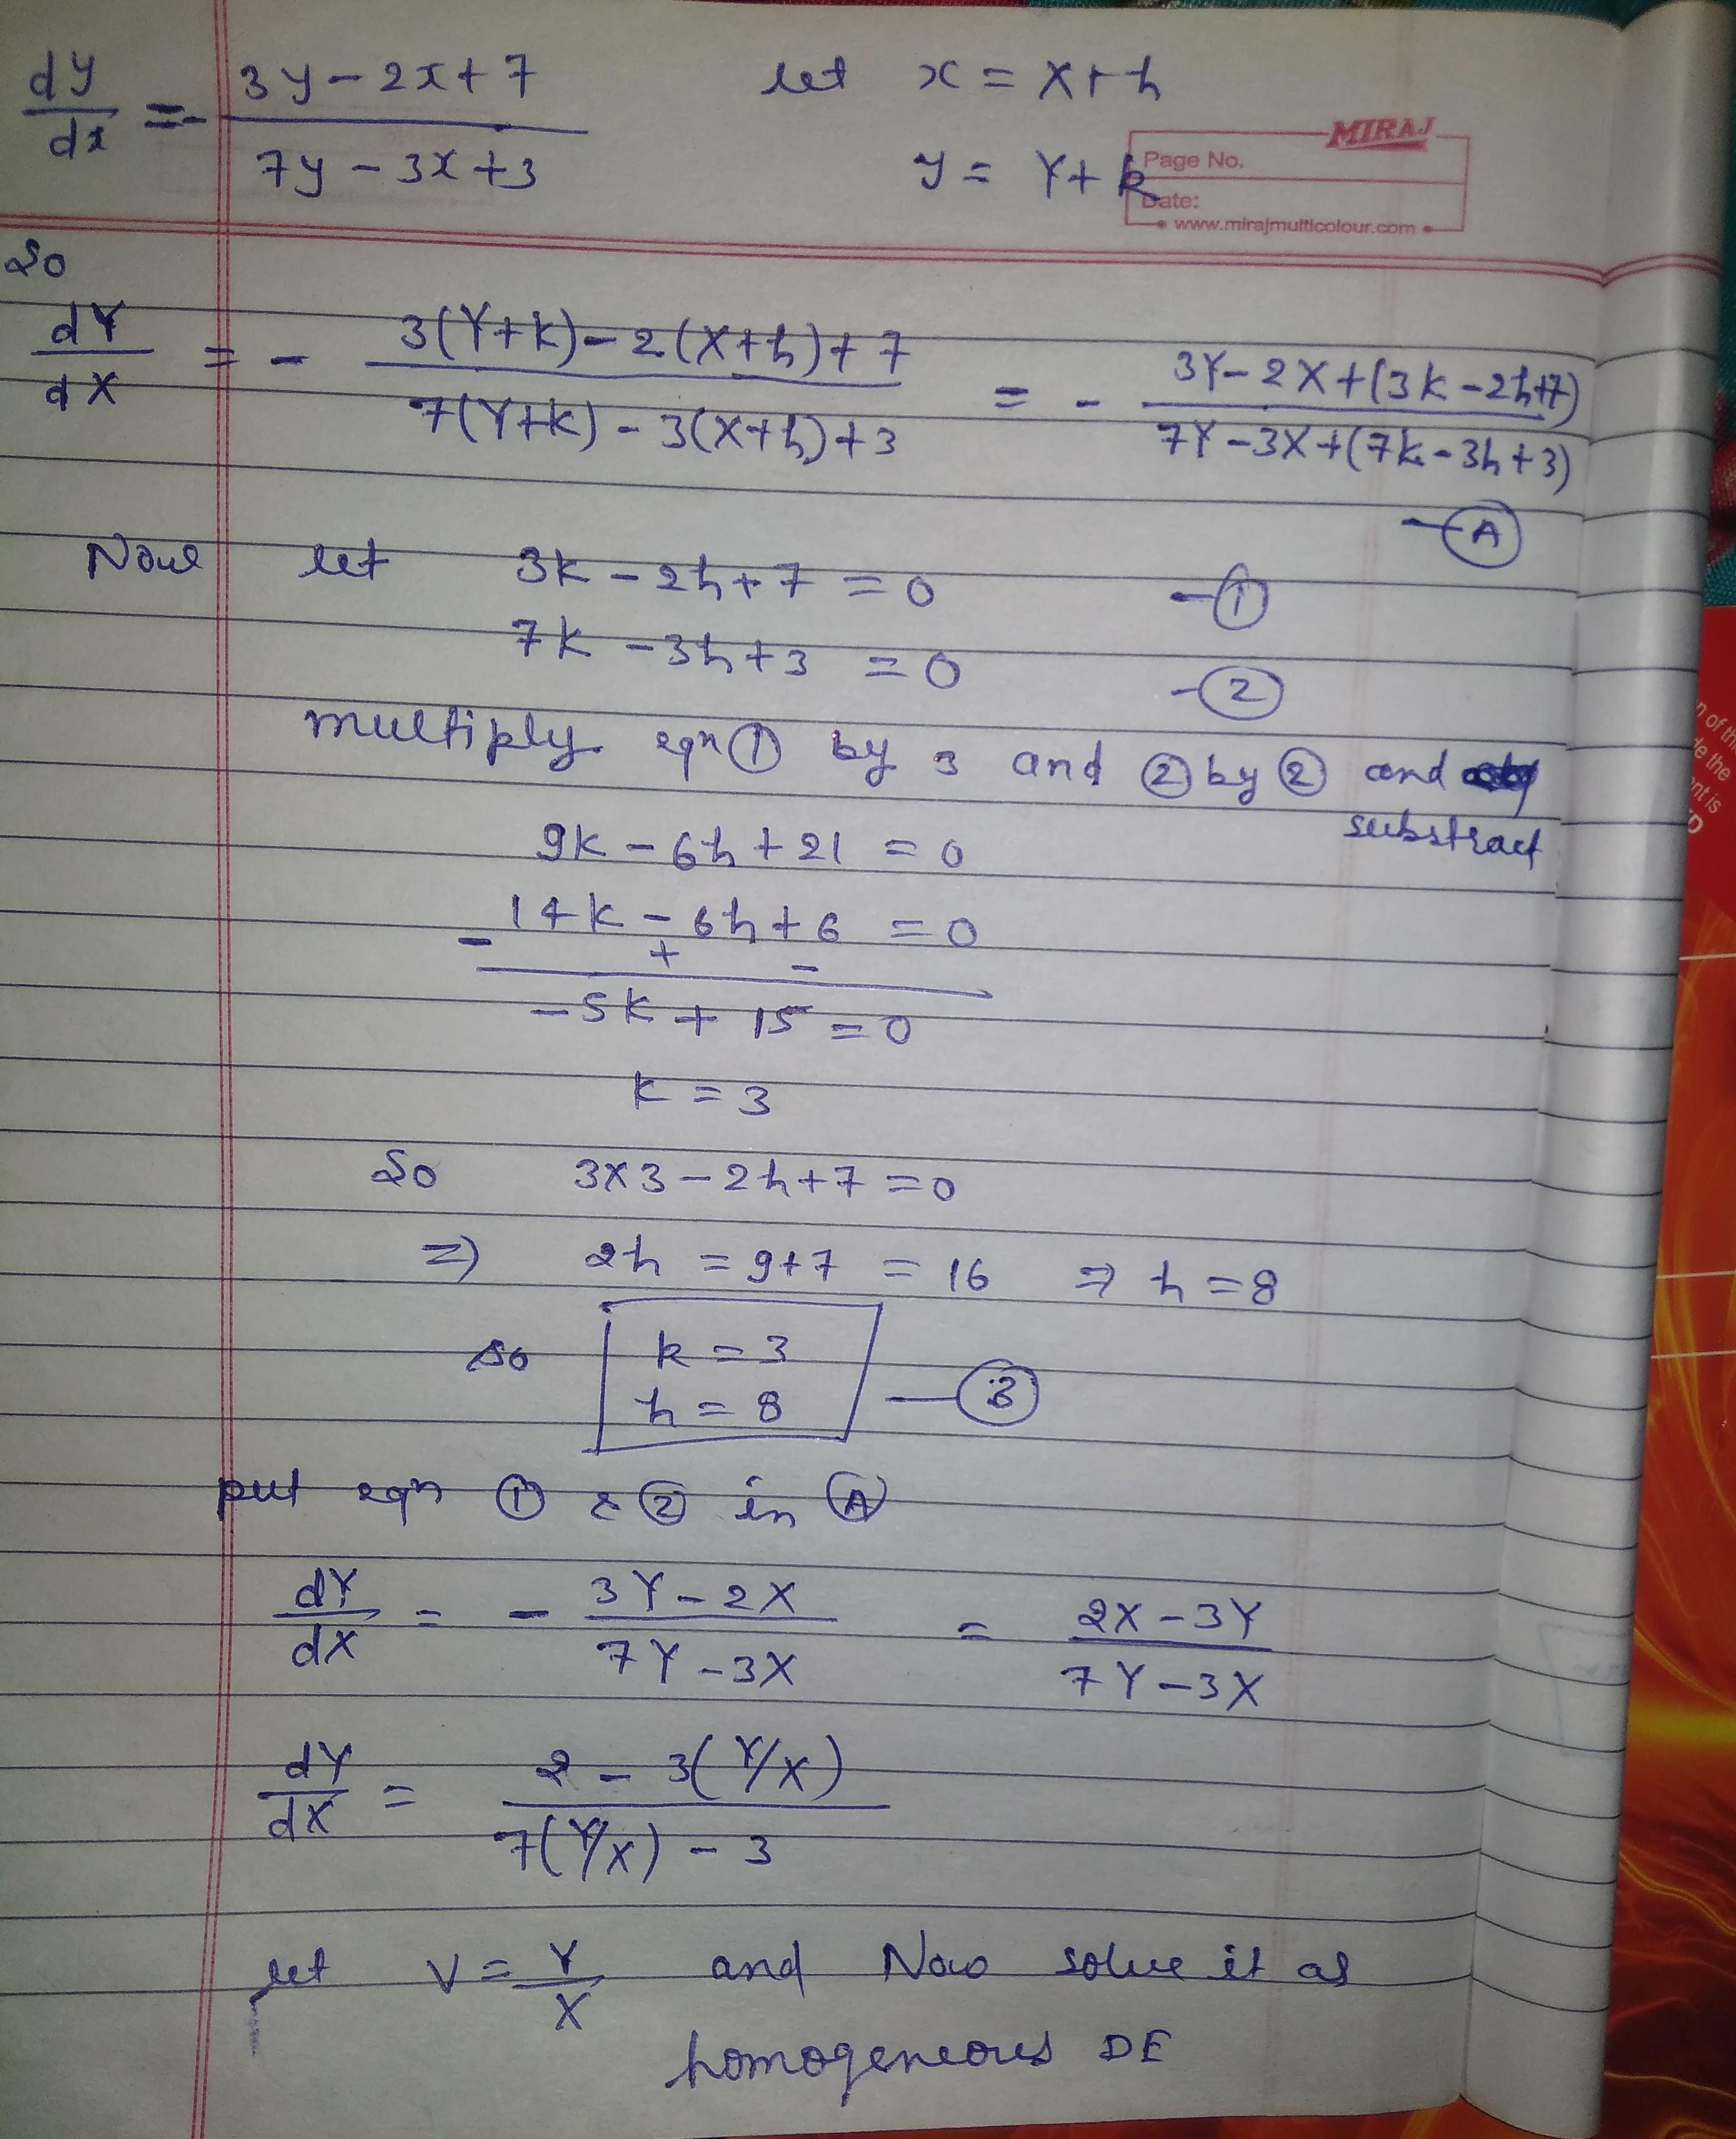 dy/dx = - (3y - 2x + 7)/(7y - 3x + 3) let x = X + h
y = Y + k
MIRAJ
Page No.
Date:
www.mirajmulticolour.com
So
dY/dX = - (3(Y+k) - 2(X+h) + 7)/(7(Y+k) - 3(X+h) + 3) = - (3Y - 2X + (3k - 2h + 7))/(7Y - 3X + (7k - 3h + 3))
- Ⓐ
Now let 3k - 2h + 7 = 0 - ①
7k - 3h + 3 = 0 - ②
multiply eqn ① by 3 and ② by ② and
substract
9k - 6h + 21 = 0
14k - 6h + 6 = 0
- + -
-5k + 15 = 0
k = 3
So 3×3 - 2h + 7 = 0
⇒ 2h = 9+7 = 16 ⇒ h = 8
so k = 3
h = 8 — Ⓑ
put eqn ① & ② in Ⓐ
dY/dX = - (3Y - 2X)/(7Y - 3X) = (2X - 3Y)/(7Y - 3X)
dY/dX = (2 - 3(Y/X))/(7(Y/X) - 3)
let V = Y/X and Now solve it as
homogeneous DE